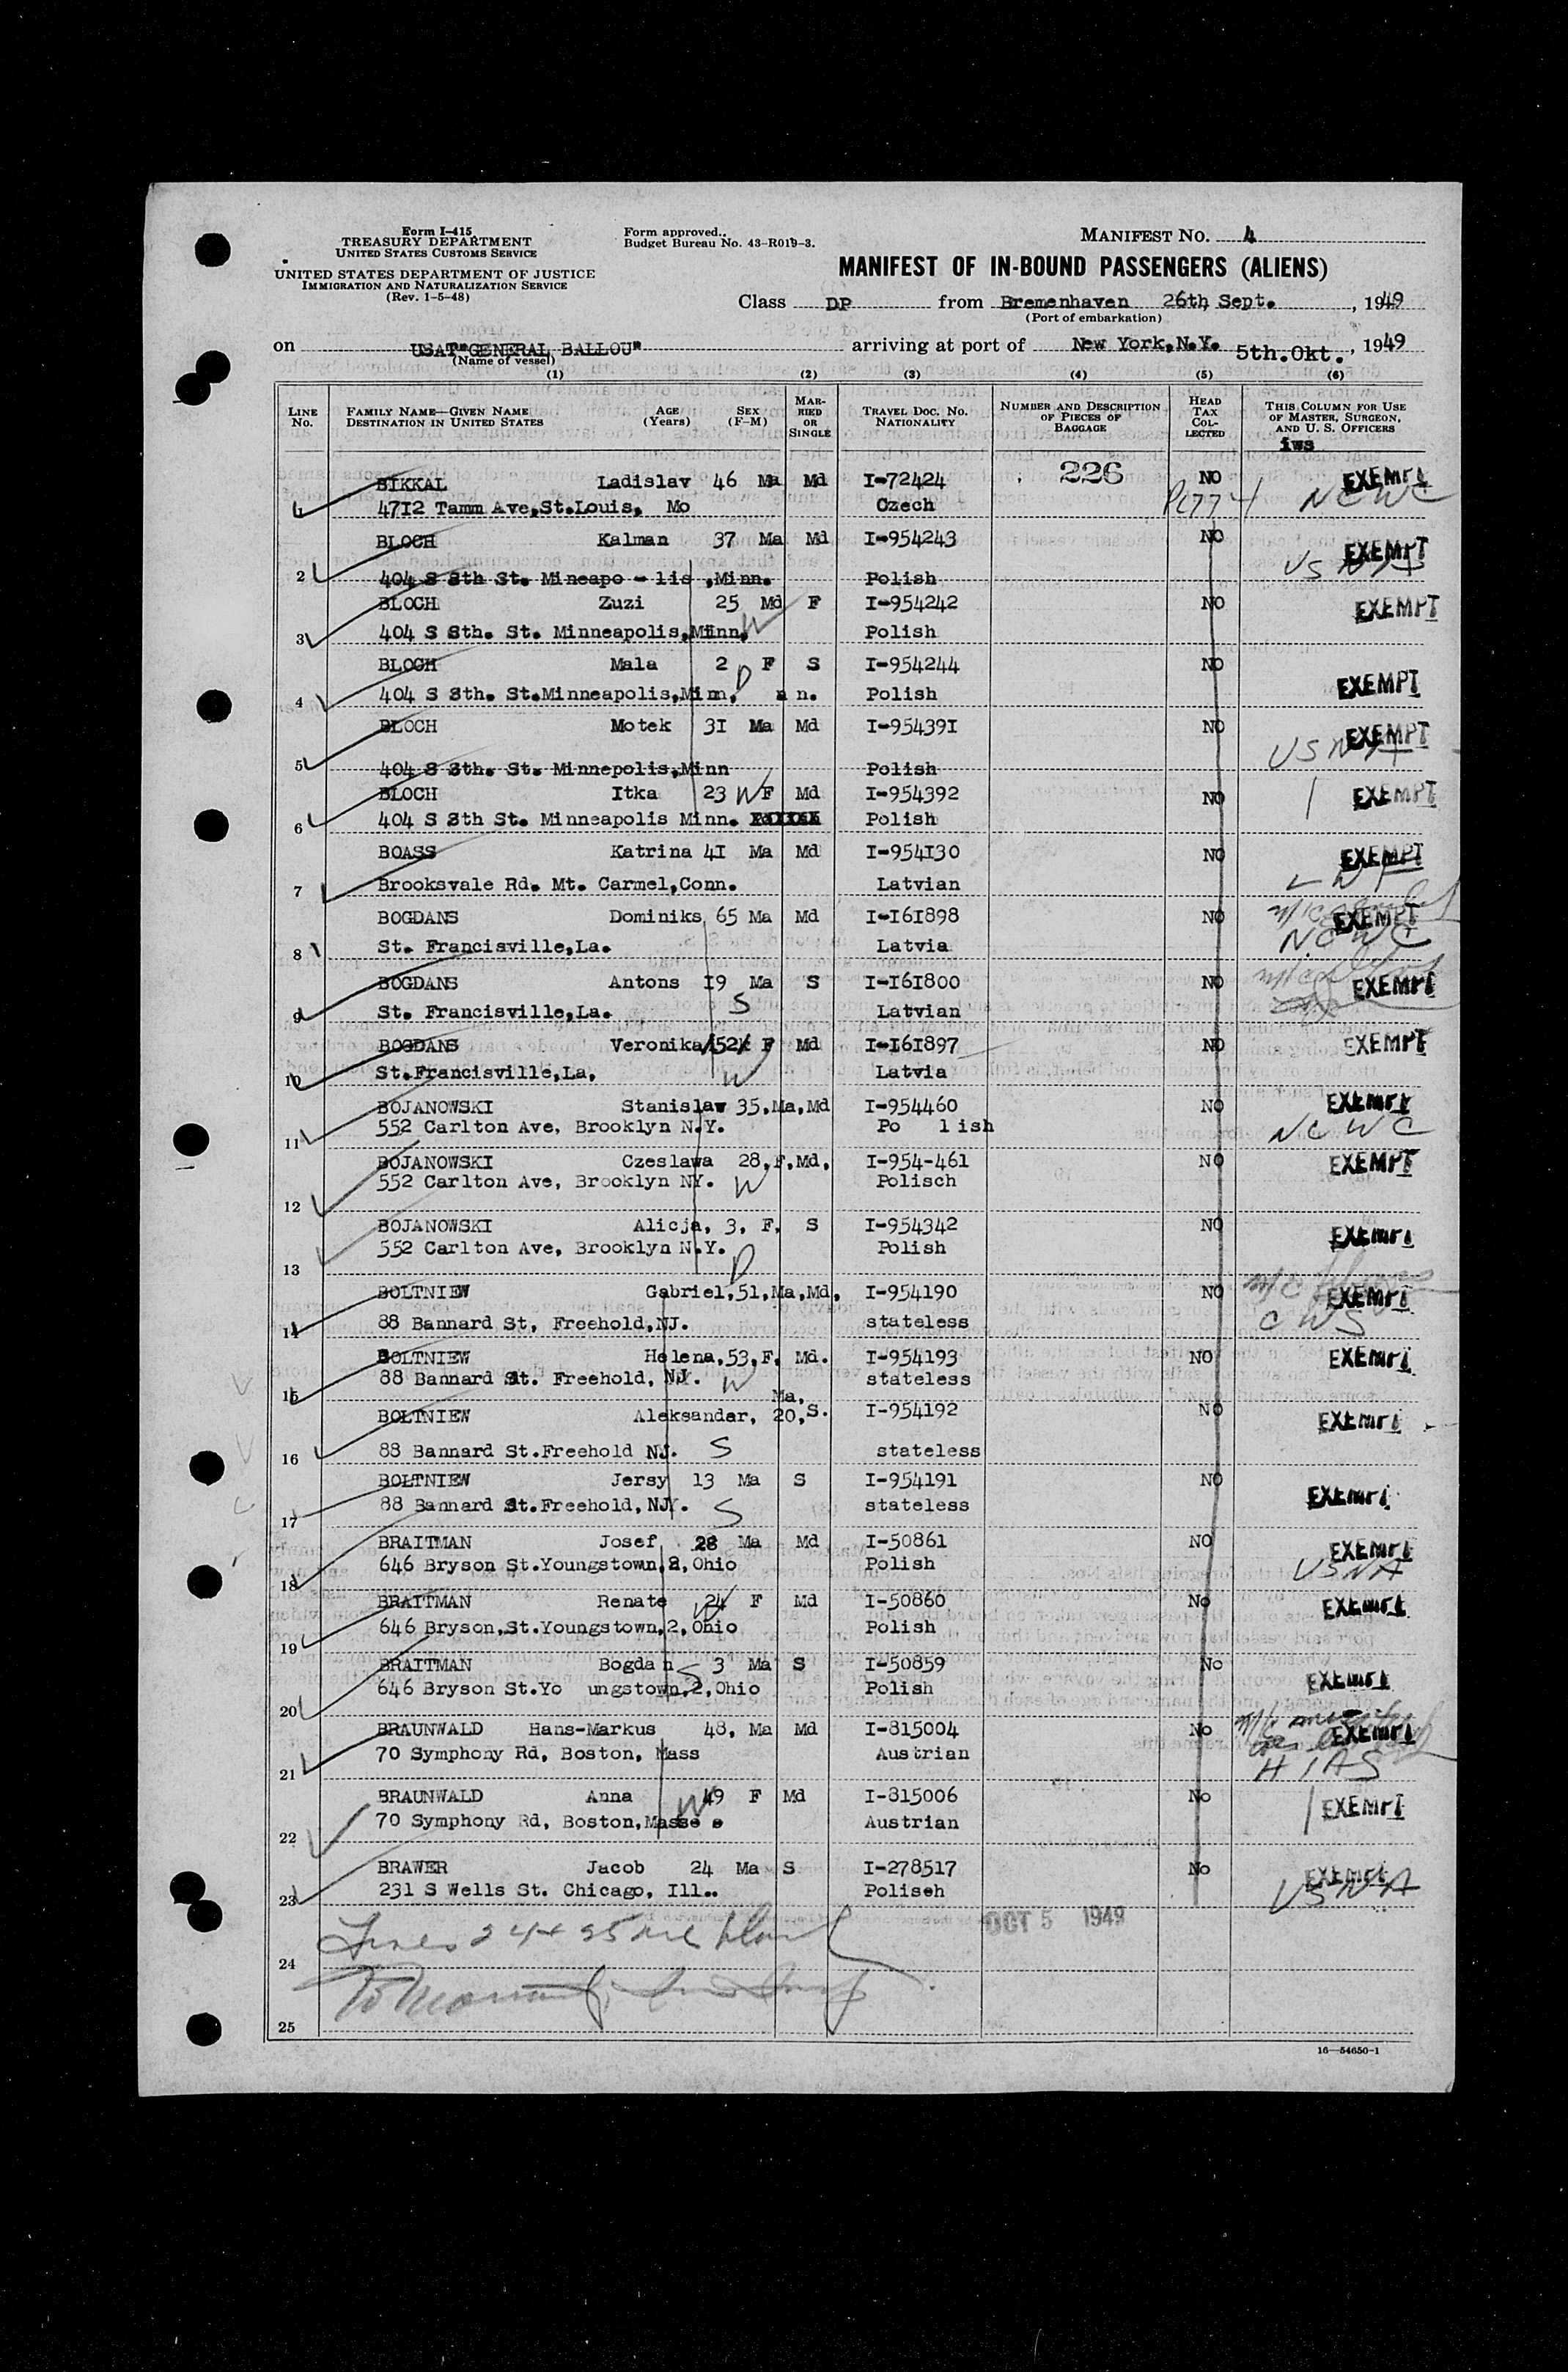 Form I-415
TREASURY DEPARTMENT
UNITED STATES CUSTOMS SERVICE
UNITED STATES DEPARTMENT OF JUSTICE
IMMIGRATION AND NATURALIZATION SERVICE
(Rev. 1-5-48)
Form approved.
Budget Bureau No. 43-R019-3.
MANIFEST NO. 4
MANIFEST OF IN-BOUND PASSENGERS (ALIENS)
Class DP from Bremenhaven 26th Sept. , 1949
(Port of embarkation)
on USAT"GENERAL BALLOU" arriving at port of New York,N.Y. 5th.Okt. , 1949
(Name of vessel)
(1) (2) (3) (4) (5) (6)
LINE No. FAMILY NAME—GIVEN NAME DESTINATION IN UNITED STATES AGE (Years) SEX (F-M) MARRIED OR SINGLE TRAVEL DOC. NO. NATIONALITY NUMBER AND DESCRIPTION OF PIECES OF BAGGAGE HEAD TAX COLLECTED THIS COLUMN FOR USE OF MASTER, SURGEON, AND U. S. OFFICERS
iws
BIKKAL Ladislav 46 Ma Md I-72424 226 NO EXEMPT
1 4712 Tamm Ave,St.Louis, Mo Czech NCWC
BLOCH Kalman 37 Ma Md I-954243 NO EXEMPT
2 404 S 8th St. Mineapo - lis ,Minn. Polish USNA
BLOCH Zuzi 25 Md F I-954242 NO EXEMPT
3 404 S 8th. St. Minneapolis,Minn, W Polish
BLOCH Mala 2 F S I-954244 NO EXEMPT
4 404 S 8th. St.Minneapolis,Minn, D n. Polish
BLOCH Motek 31 Ma Md I-954391 NO EXEMPT
5 404 S 8th. St. Minnepolis,Minn Polish USNA
BLOCH Itka 23 W F Md I-954392 NO EXEMPT
6 404 S 8th St. Minneapolis Minn. Polish
BOASS Katrina 41 Ma Md I-954130 NO EXEMPT
7 Brooksvale Rd. Mt. Carmel,Conn. Latvian
BOGDANS Dominiks 65 Ma Md I-161898 NO EXEMPT
8 St. Francisville,La. Latvia NCWC
BOGDANS Antons 19 Ma S I-161800 NO EXEMPT
9 St. Francisville,La. S Latvian
BOGDANS Veronika 52 F Md I-161897 NO EXEMPT
10 St.Francisville,La, W Latvia
BOJANOWSKI Stanislaw 35,Ma,Md I-954460 NO EXEMPT
11 552 Carlton Ave, Brooklyn N.Y. Po lish NCWC
BOJANOWSKI Czeslawa 28,F,Md, I-954-461 NO EXEMPT
12 552 Carlton Ave, Brooklyn NY. W Polisch
BOJANOWSKI Alicja, 3, F, S I-954342 NO EXEMPT
13 552 Carlton Ave, Brooklyn N.Y. D Polish
BOLTNIEW Gabriel,51,Ma,Md, I-954190 NO EXEMPT
14 88 Bannard St, Freehold,NJ. stateless CWS
BOLTNIEW Helena,53,F, Md. I-954193 NO EXEMPT
15 88 Bannard St. Freehold, NJ. W stateless
BOLTNIEW Aleksandar, Ma, 20,S. I-954192 NO EXEMPT
16 88 Bannard St.Freehold NJ. S stateless
BOLTNIEW Jersy 13 Ma S I-954191 NO EXEMPT
17 88 Bannard St.Freehold,NJ. S stateless
BRAITMAN Josef 28 Ma Md I-50861 NO EXEMPT
18 646 Bryson St.Youngstown,2,Ohio Polish USNA
BRAITMAN Renate 24 F Md I-50860 No EXEMPT
19 646 Bryson,St.Youngstown,2,Ohio W Polish
BRAITMAN Bogda n 3 Ma S I-50859 No EXEMPT
20 646 Bryson St.Yo ungstown,2,Ohio S Polish
BRAUNWALD Hans-Markus 48, Ma Md I-815004 No EXEMPT
21 70 Symphony Rd, Boston, Mass Austrian HIAS
BRAUNWALD Anna 49 F Md I-815006 No EXEMPT
22 70 Symphony Rd, Boston,Mass W Austrian
BRAWER Jacob 24 Ma S I-278517 No EXEMPT
23 231 S Wells St. Chicago, Ill.. Polisch USNA
Lines 24 + 25 are blank
OCT 5 1949
24
25
16—54650-1